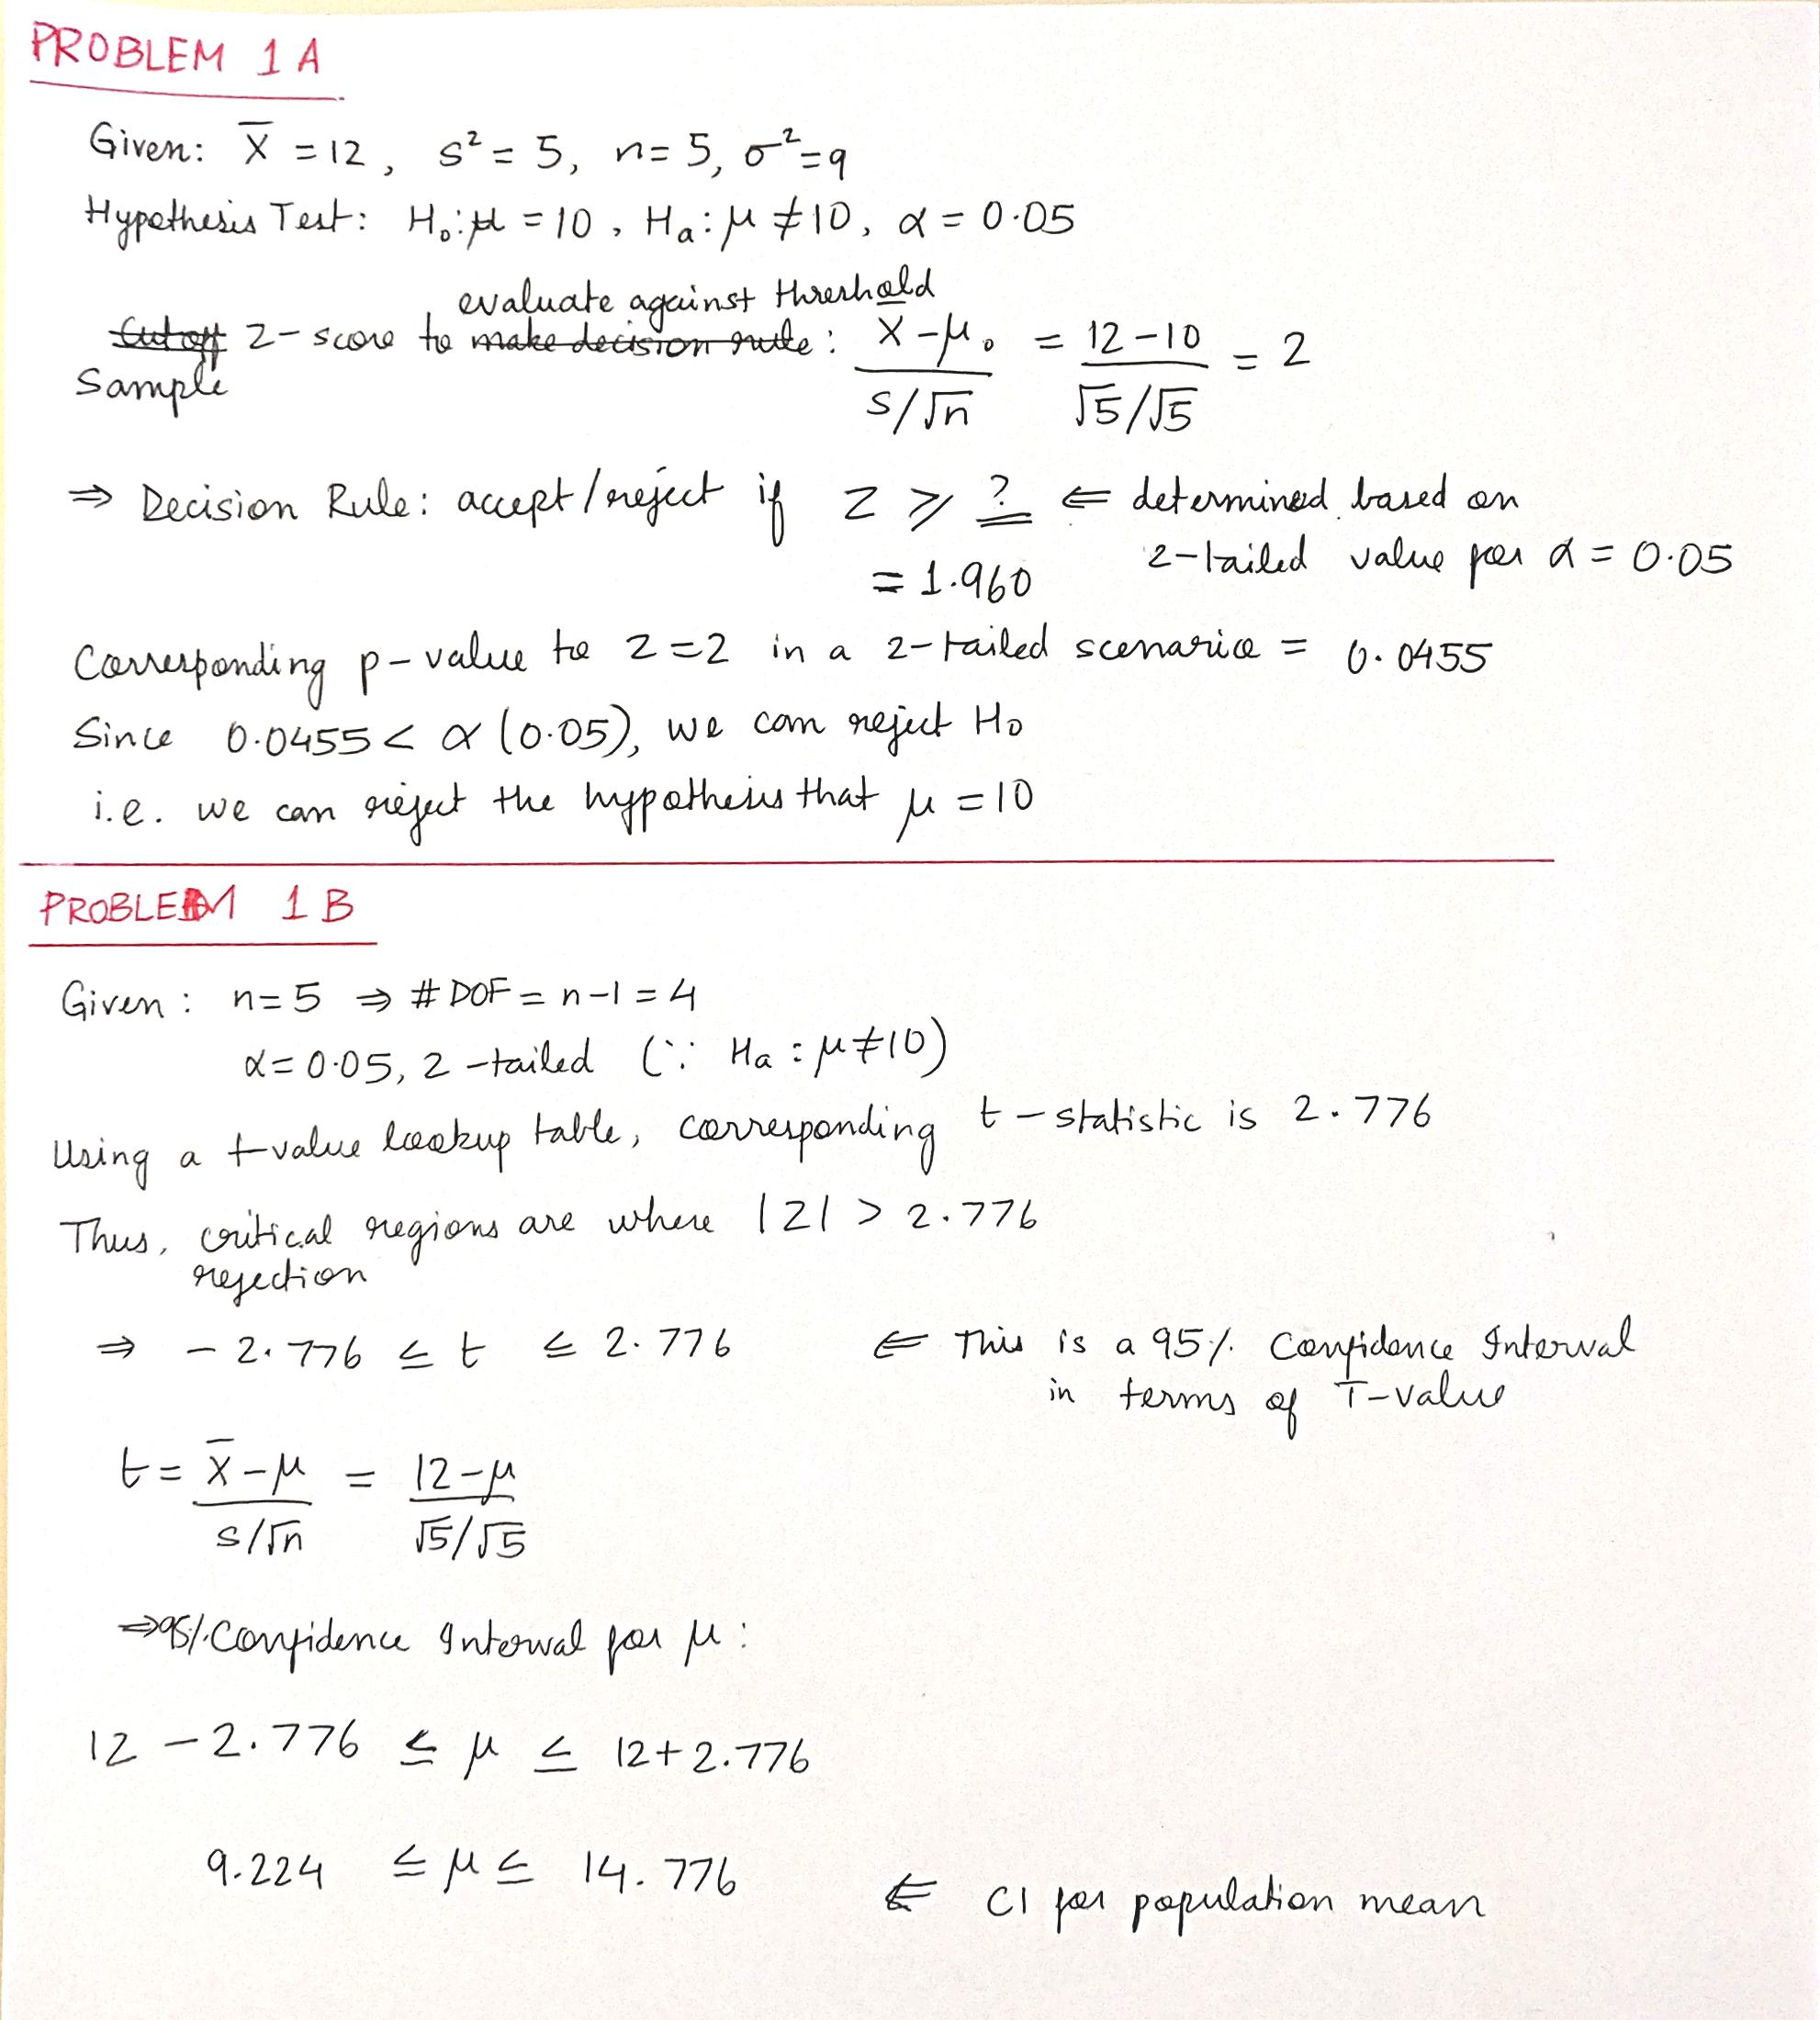 PROBLEM 1 A
Given: X̄ = 12, s² = 5, n = 5, σ² = 9
Hypothesis Test: H₀: μ = 10, Hₐ: μ ≠ 10, α = 0.05
evaluate against threshold
Cutoff Z-score to make decision rule: X - μ₀ / s/√n = 12 - 10 / √5/√5 = 2
Sample
⇒ Decision Rule: accept/reject if Z ⩾ ? ⇐ determined based on
= 1.960 2-tailed value for α = 0.05
Corresponding p-value to Z = 2 in a 2-tailed scenario = 0.0455
Since 0.0455 < α (0.05), we can reject H₀
i.e. we can reject the hypothesis that μ = 10
PROBLEM 1 B
Given: n = 5 ⇒ # DOF = n - 1 = 4
α = 0.05, 2-tailed (∵ Hₐ: μ ≠ 10)
Using a t-value lookup table, corresponding t-statistic is 2.776
Thus, critical regions are where |Z| > 2.776
rejection
⇒ - 2.776 ≤ t ≤ 2.776 ⇐ This is a 95% Confidence Interval
in terms of T-value
t = X̄ - μ / s/√n = 12 - μ / √5/√5
⇒ 95% Confidence Interval for μ:
12 - 2.776 ≤ μ ≤ 12 + 2.776
9.224 ≤ μ ≤ 14.776 ⇐ CI for population mean